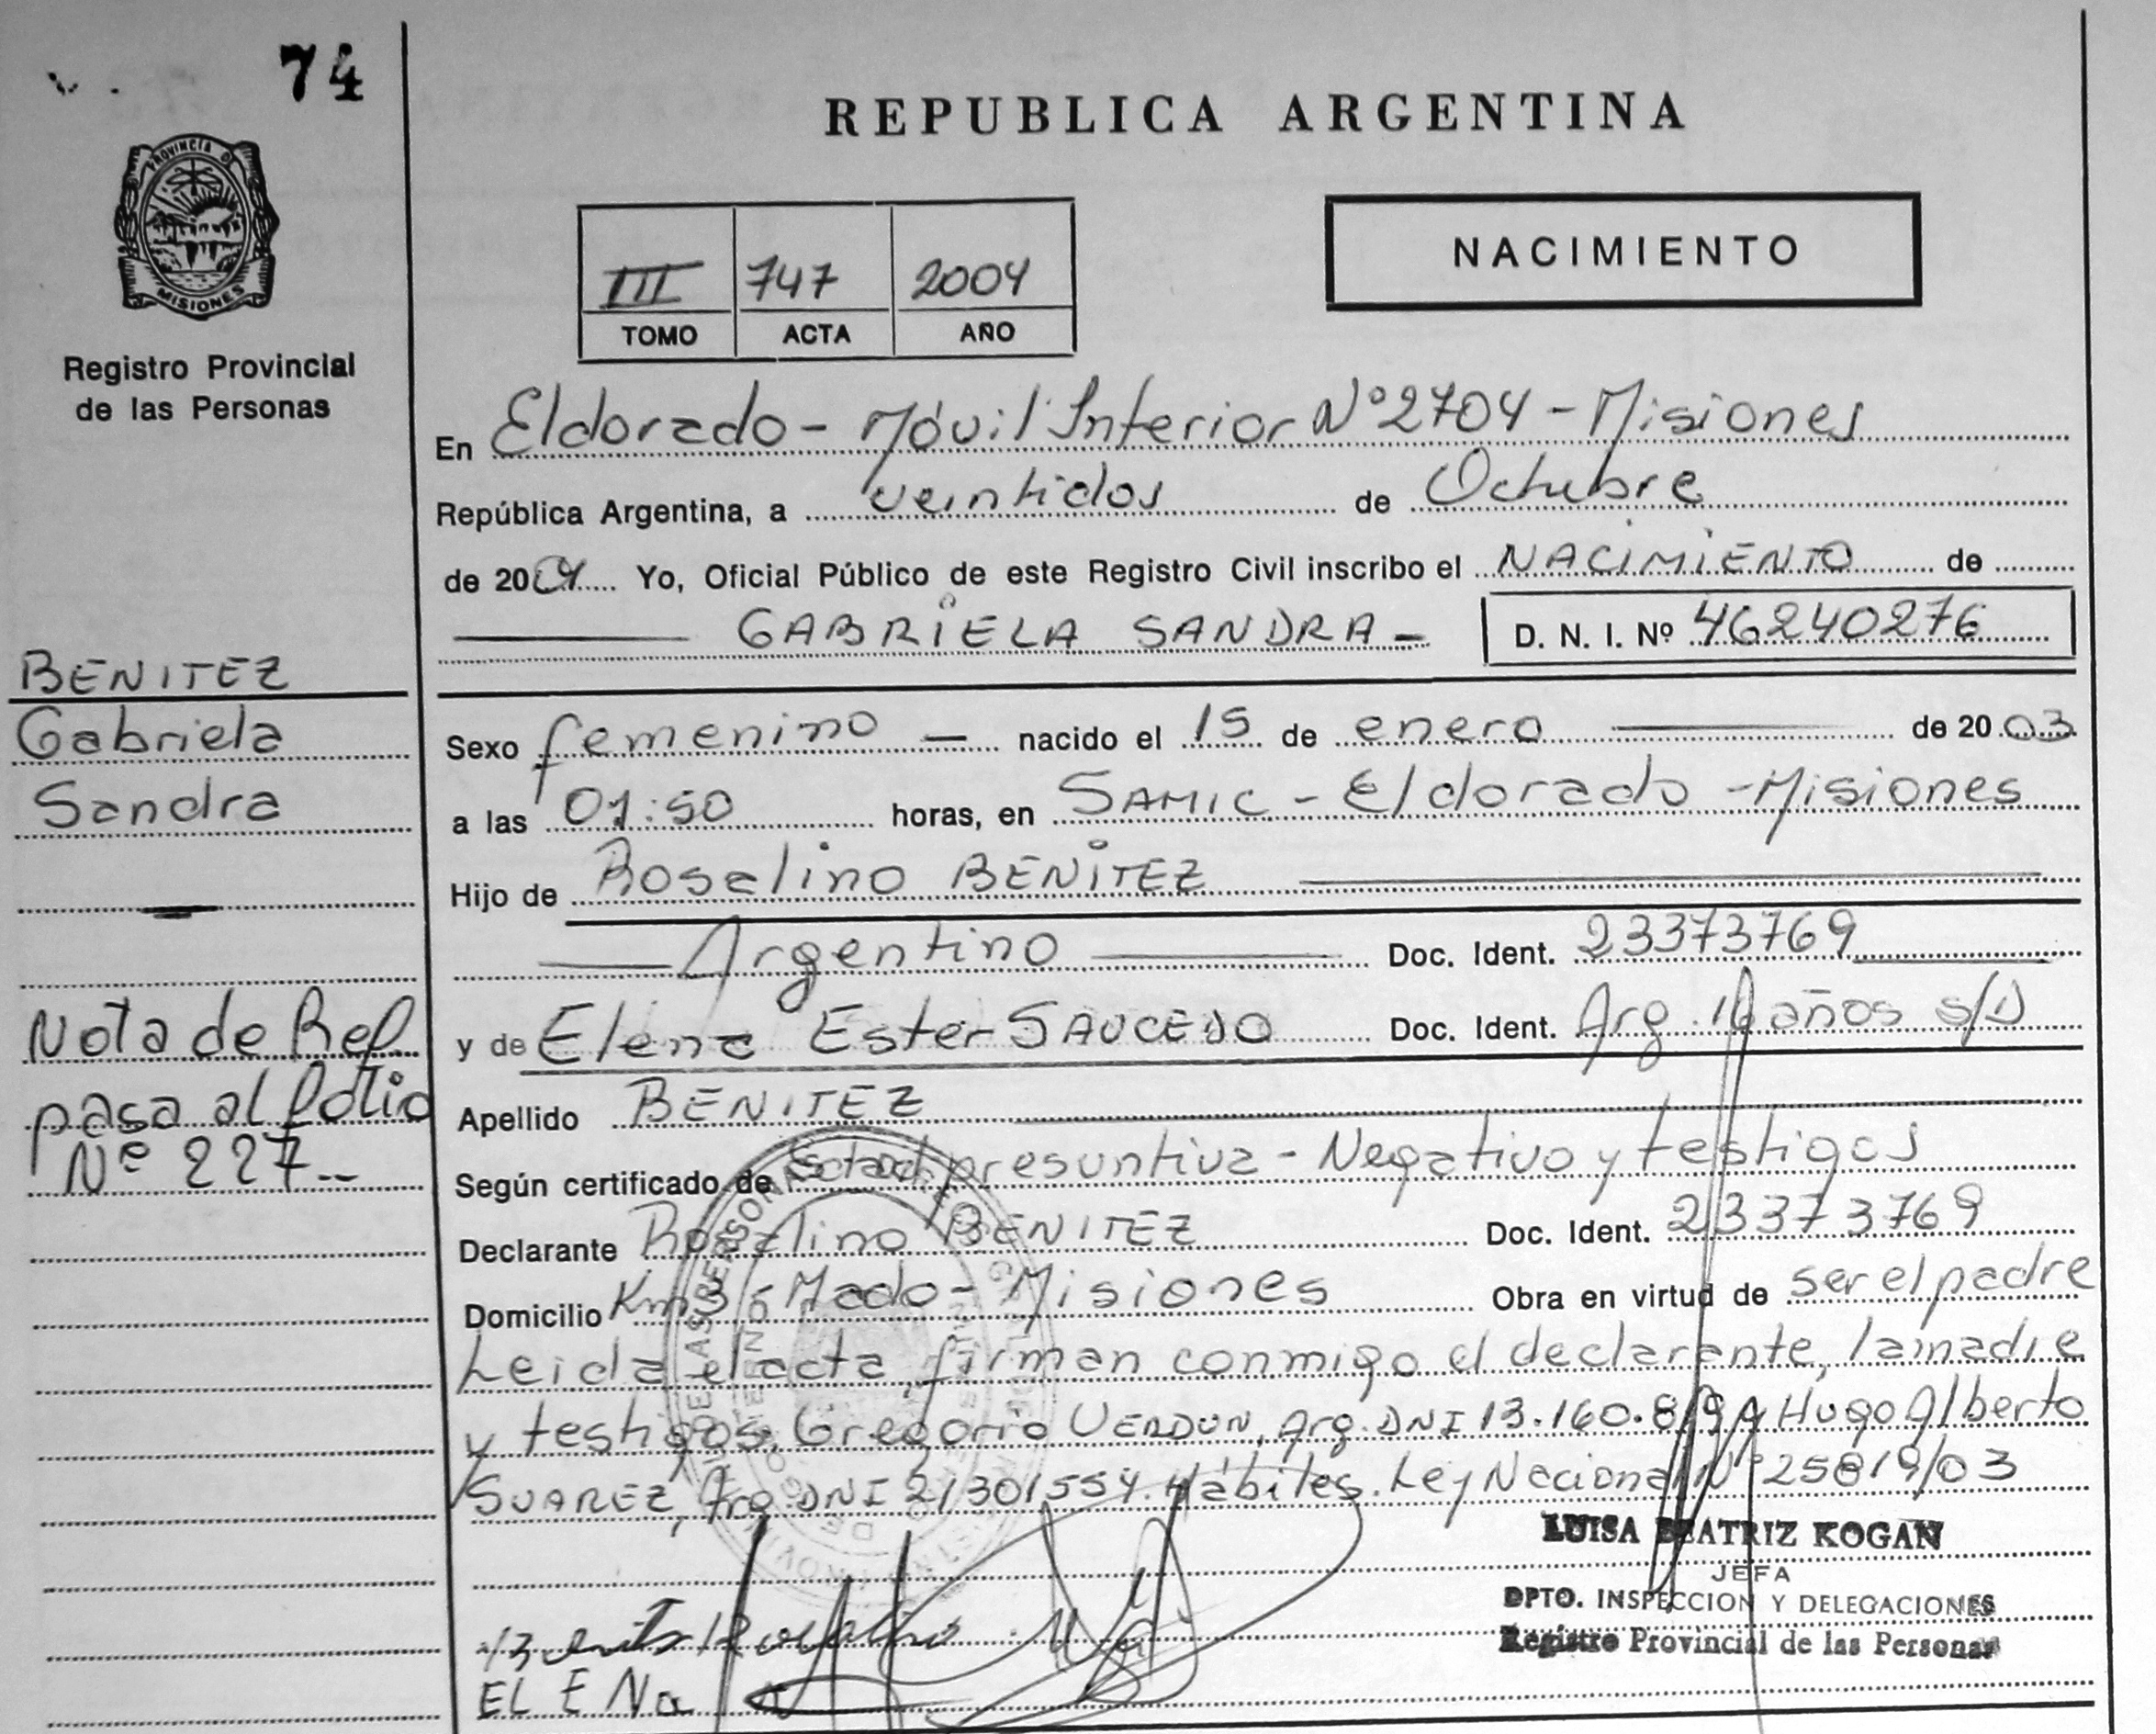 74
REPUBLICA ARGENTINA
PROVINCIA DE
MISIONES
Registro Provincial
de las Personas
III 747 2004
TOMO ACTA AÑO
NACIMIENTO
En Eldorado - Móvil Interior Nº 2704 - Misiones
República Argentina, a veintidos de Octubre
de 2004 Yo, Oficial Público de este Registro Civil inscribo el NACIMIENTO de
GABRIELA SANDRA - D. N. I. Nº 46240276
BENITEZ
Gabriela
Sandra
Sexo femenino - nacido el 15 de enero de 2003
a las 01:50 horas, en SAMIC - Eldorado - Misiones
Hijo de Rosalino BENITEZ
Argentino Doc. Ident. 23373769
y de Elena Ester SAUCEDO Doc. Ident. Arg. años s/D
Nota de Ref.
pasa al folio
Nº 227--
Apellido BENITEZ
Según certificado de presuntiva - Negativo y testigos
Declarante Rosalino BENITEZ Doc. Ident. 23373769
Domicilio Km 3 - Mado - Misiones Obra en virtud de ser el padre
Leida el acta, firman conmigo el declarante, la madre
y testigos, Gregorio VERDUN, Arg. DNI 13.160.819 y Hugo Alberto
SUAREZ, Arg. DNI 21301554. Hábiles. Ley Nacional Nº 25819/03
LUISA BEATRIZ KOGAN
JEFA
DPTO. INSPECCION Y DELEGACIONES
Registro Provincial de las Personas
ELENA